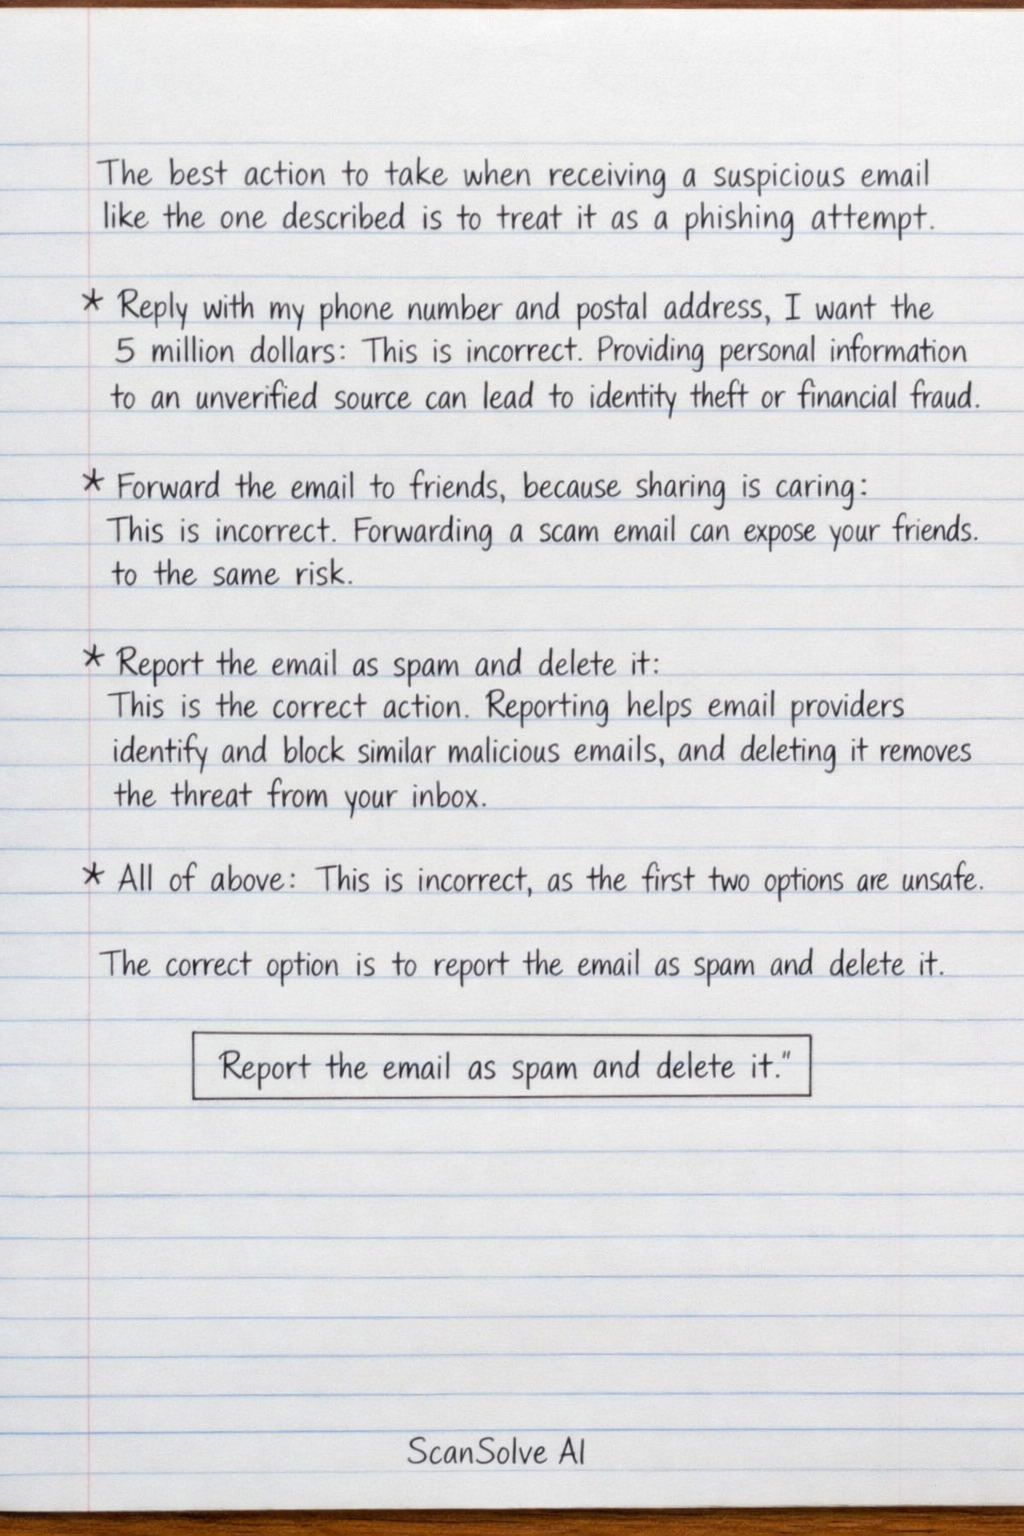 The best action to take when receiving a suspicious email
like the one described is to treat it as a phishing attempt.
* Reply with my phone number and postal address, I want the
5 million dollars: This is incorrect. Providing personal information
to an unverified source can lead to identity theft or financial fraud.
* Forward the email to friends, because sharing is caring:
This is incorrect. Forwarding a scam email can expose your friends.
to the same risk.
* Report the email as spam and delete it:
This is the correct action. Reporting helps email providers
identify and block similar malicious emails, and deleting it removes
the threat from your inbox.
* All of above: This is incorrect, as the first two options are unsafe.
The correct option is to report the email as spam and delete it.
Report the email as spam and delete it."
ScanSolve AI